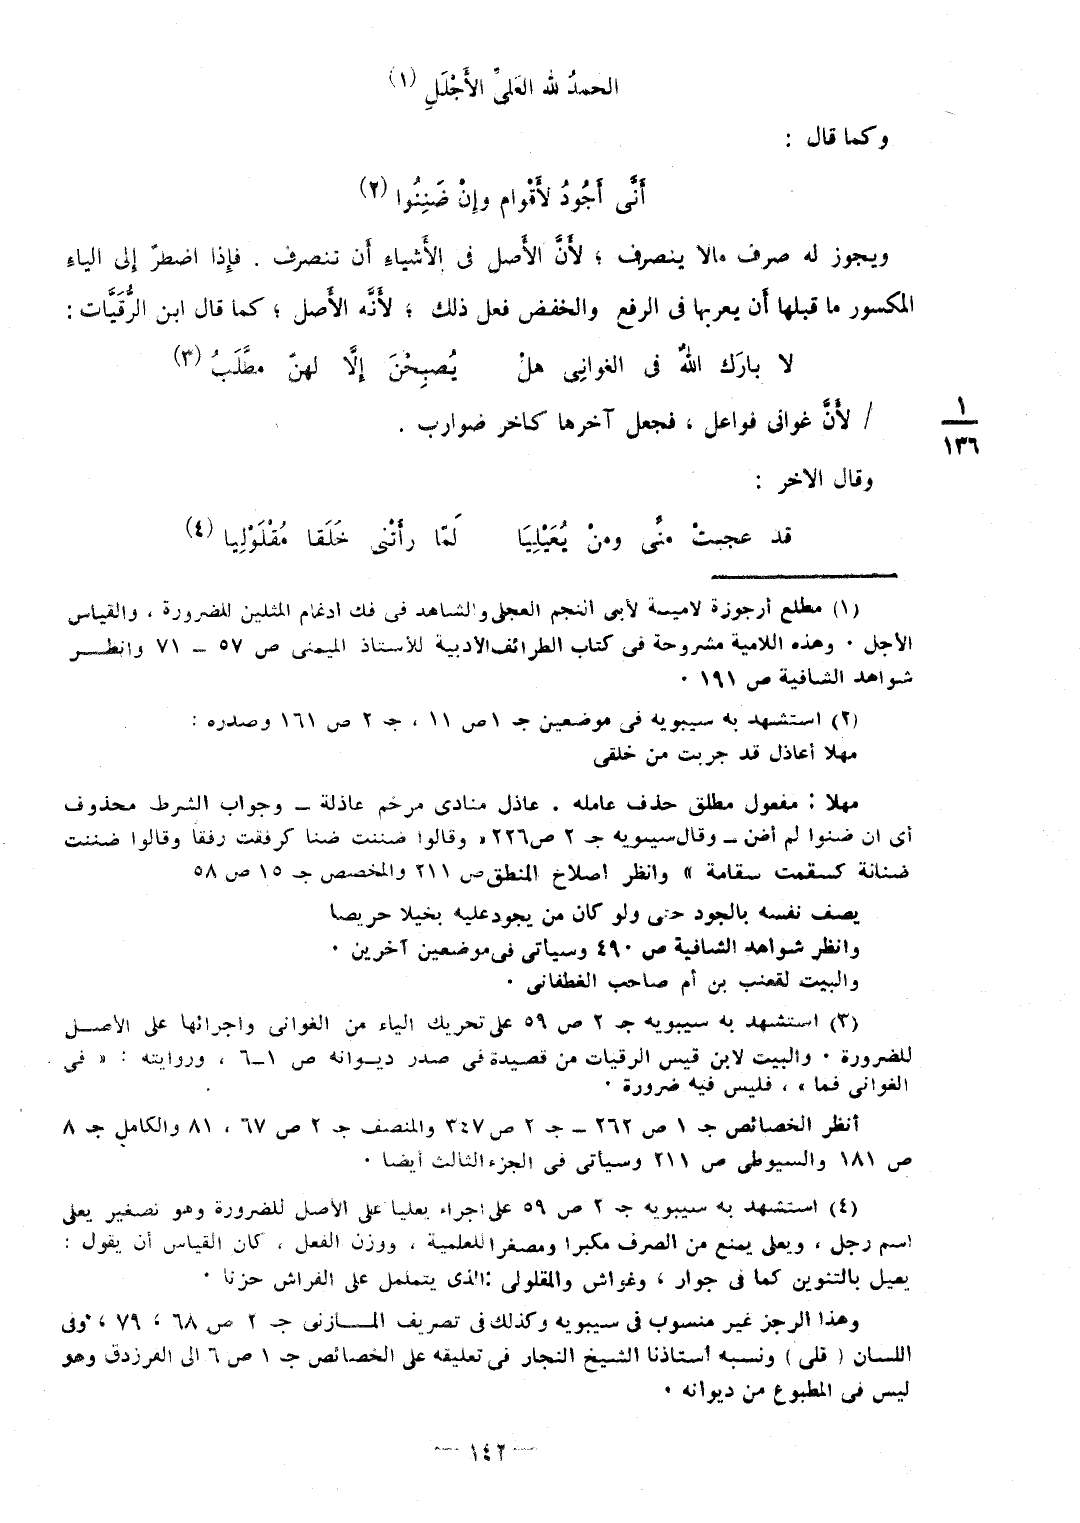 الحمدُ لله العَلىِّ الأَجْلَلِ (١)
وكما قال :
أَنَّى أَجُودُ لأَقْوام وإِنْ ضَنِنُوا (٢)
ويجوز له صرف مالا ينصرف ؛ لأَنَّ الأَصل فى الأَشياءِ أَن تنصرف . فإِذا اضطرّ إلى الياءِ
المكسور ما قبلها أَن يعربها فى الرفع والخفض فعل ذلك ؛ لأَنَّه الأَصل ؛ كما قال ابن الرُّقَيَّات :
لا بارَك اللهُ فى الغوانِى هلْ يُصبِحْنَ إِلَّا لهنّ مطَّلَبُ (٣)
/ لأَنَّ غوانى فواعل ، فجعل آخرها كآخر ضوارب .
١
١٣٦
وقال الآخر :
قد عجبتْ منِّى ومنْ يُعَيْلِيَا لَمّا رأَتْنى خَلَقا مُقْلَوْلِيا (٤)
(١) مطلع أرجوزة لامية لأبى النجم العجلى والشاهد فى فك ادغام المثلين للضرورة ، والقياس
الأجل . وهذه اللامية مشروحة فى كتاب الطرائف الأدبية للأستاذ الميمنى ص ٥٧ – ٧١ وانظر
شواهد الشافية ص ١٩١ .
(٢) استشهد به سيبويه فى موضعين جـ ١ ص ١١ ، جـ ٢ ص ١٦١ وصدره :
مهلا أعاذل قد جربت من خلقى
مهلا : مفعول مطلق حذف عامله . عاذل منادى مرخم عاذلة – وجواب الشرط محذوف
أى ان ضنوا لم أضن – وقال سيبويه جـ ٢ ص ٢٢٦ « وقالوا ضننت ضنا كرفقت رفقا وقالوا ضننت
ضنانة كسقمت سقامة » وانظر اصلاح المنطق ص ٢١١ والمخصص جـ ١٥ ص ٥٨
يصف نفسه بالجود حتى ولو كان من يجود عليه بخيلا حريصا
وانظر شواهد الشافية ص ٤٩٠ وسيأتى فى موضعين آخرين .
والبيت لقعنب بن أم صاحب الغطفانى .
(٣) استشهد به سيبويه جـ ٢ ص ٥٩ على تحريك الياء من الغوانى واجرائها على الأصل
للضرورة . والبيت لابن قيس الرقيات من قصيدة فى صدر ديوانه ص ١–٦ ، وروايته : « فى
الغوانى فما » ، فليس فيه ضرورة .
أنظر الخصائص جـ ١ ص ٢٦٢ – جـ ٢ ص ٣٤٧ والمنصف جـ ٢ ص ٦٧ ، ٨١ والكامل جـ ٨
ص ١٨١ والسيوطى ص ٢١١ وسيأتى فى الجزء الثالث أيضا .
(٤) استشهد به سيبويه جـ ٢ ص ٥٩ على اجراء يعليا على الأصل للضرورة وهو تصغير يعلى
اسم رجل ، ويعلى يمنع من الصرف مكبرا ومصغرا للعلمية ، ووزن الفعل ، كان القياس أن يقول :
يعيل بالتنوين كما فى جوار ، وغواش والمقلولى : الذى يتململ على الفراش حزنا .
وهذا الرجز غير منسوب فى سيبويه وكذلك فى تصريف المازنى جـ ٢ ص ٦٨ ، ٧٩ ، وفى
اللسان ( قلى ) ونسبه أستاذنا الشيخ النجار فى تعليقه على الخصائص جـ ١ ص ٦ الى الفرزدق وهو
ليس فى المطبوع من ديوانه .
— ١٤٢ —